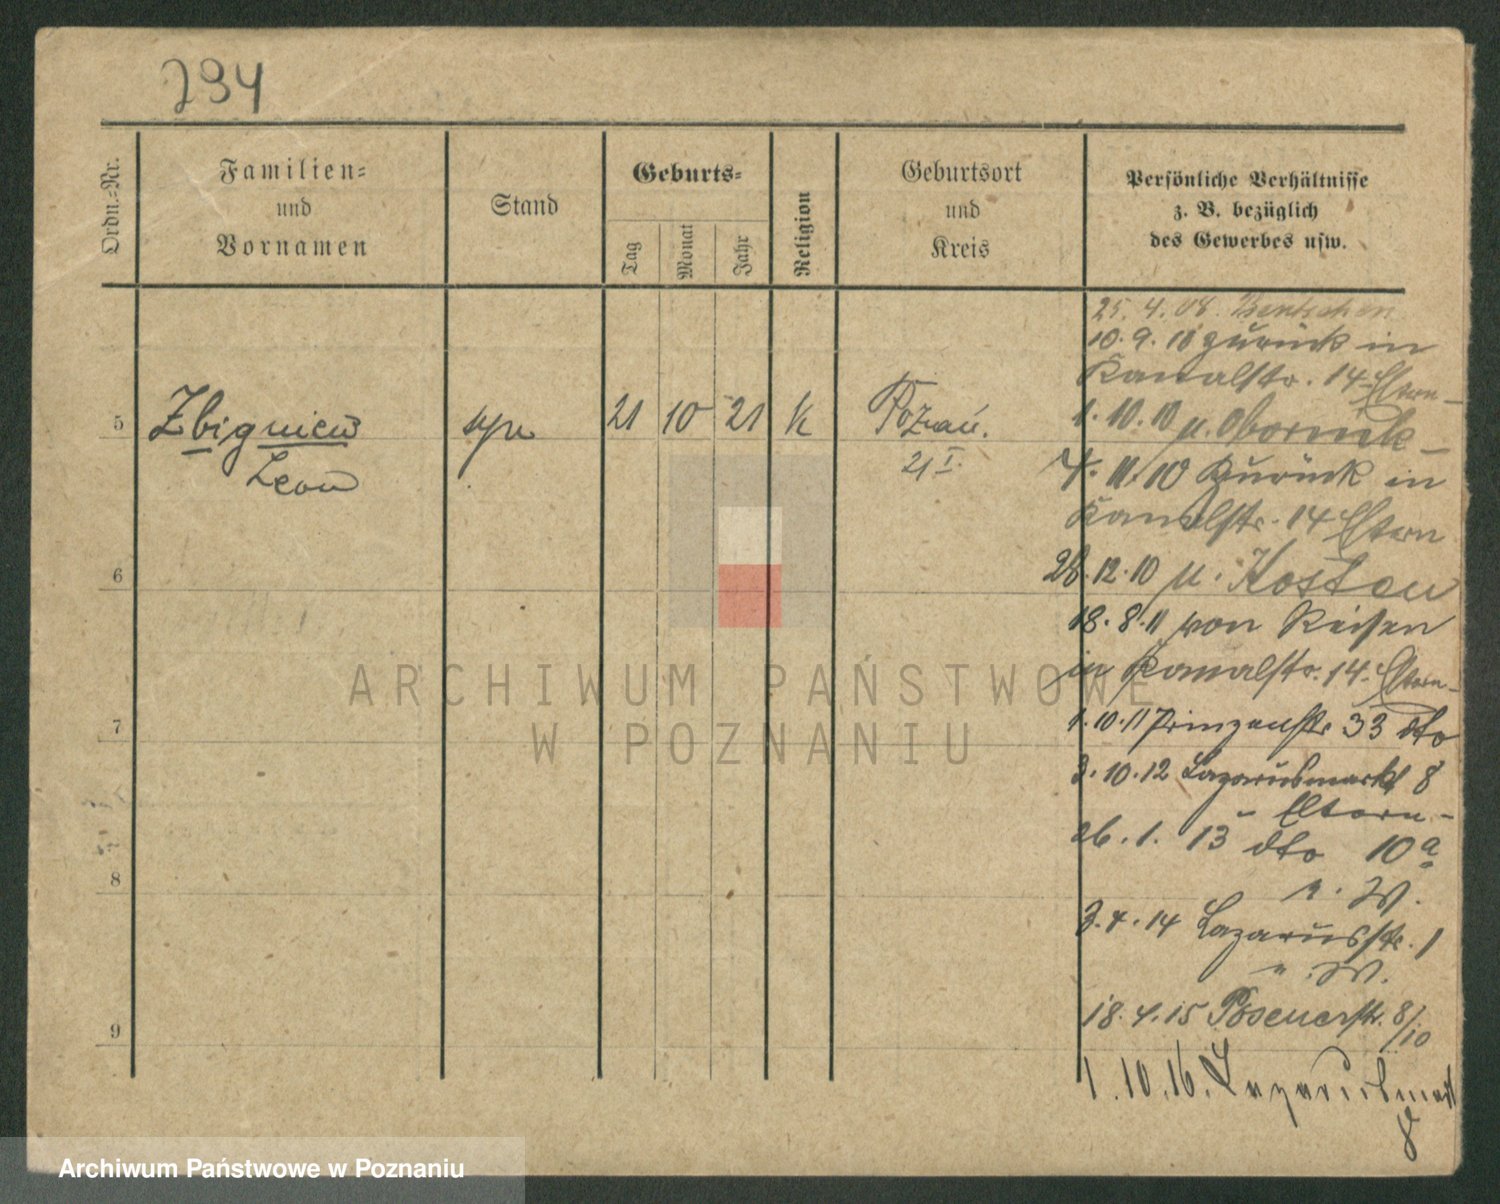 294
Ordn.-Nr.
Familien-
und
Vornamen
Stand
Geburts-
Tag
Monat
Jahr
Religion
Geburtsort
und
Kreis
Persönliche Verhältnisse
z. B. bezüglich
des Gewerbes usw.
25. 4. 08. Bentschen
10. 9. 10 zurück in
Kanalstr. 14 Eltern
1. 10. 10 n. Obornik
5
Zbigniew
Leon
syn
21 10 21 k
Poznań.
21 I.
4. 11. 10 zurück in
Kanalstr. 14 Eltern
6
28. 12. 10 n. Kosten
18. 8. 11 von Reisen
in Kanalstr. 14. Eltern
7
1. 10. 11 Prinzenstr 33 dto
3. 10. 12 Lazarusmarkt 8
Eltern
26. 1. 13 dto 10a
8
W.
3. 4. 14 Lazarusstr. 1
W.
9
18. 4. 15 Posenerstr. 8/10
1. 10. 16. Lazarusmarkt
8
ARCHIWUM PAŃSTWOWE
W POZNANIU
Archiwum Państwowe w Poznaniu